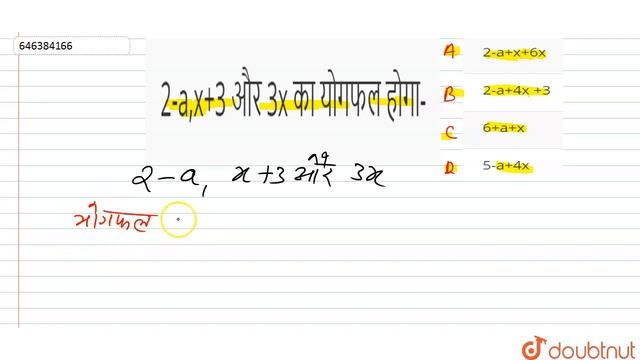 646384166
2-a,x+3 और 3x का योगफल होगा-
A 2-a+x+6x
B 2-a+4x +3
C 6+a+x
D 5-a+4x
2-a, x+3 और 3x
योगफल
doubtnut